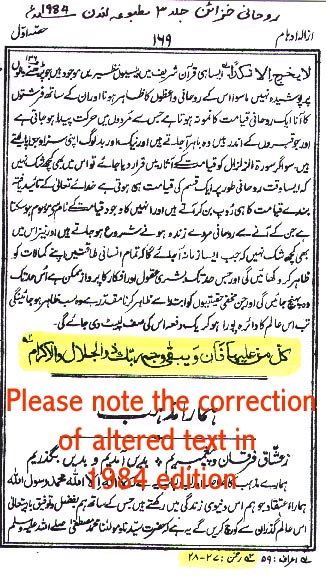 روحانی خزائن جلد ۳ مطبوعہ لندن 1984ء
ازالہ اوہام ۱۶۹ حصہ اول
لا یخرج الا نکدا۔ ایسا ہی قرآن شریف میں بیسیوں نظیریں موجود ہیں جو پڑھنے والوں
پر پوشیدہ نہیں ماسوا اس کے روحانی واعظوں کا ظاہر ہونا اور ان کے ساتھ فرشتوں
کا آنا ایک روحانی قیامت کا نمونہ ہوتا ہے جس سے مردوں میں حرکت پیدا ہو جاتی ہے
اور جو قبروں کے اندر ہیں وہ باہر آجاتے ہیں اور نیک اور بد لوگ اپنی سزا جزا پا لیتے
ہیں سو اگر سورۃ الزلزال کو قیامت کے آثار میں قرار دیا جائے تو اس میں بھی کچھ شک نہیں
کہ ایسا وقت روحانی طور پر ایک قسم کی قیامت ہی ہوتی ہے خدائے تعالیٰ کے تائید یافتہ
بندے قیامت کا ہی روپ بن کر آتے ہیں اور انہیں کا وجود قیامت کے نام سے موسوم ہو سکتا
ہے جن کے آنے سے روحانی مردے زندہ ہونے شروع ہو جاتے ہیں اور نیز اس میں
بھی کچھ شک نہیں کہ جب ایسا زمانہ آجائے گا کہ تمام انسانی طاقتیں اپنے کمالات کو
ظاہر کر دکھائیں گی اور جس حد تک بشری عقول اور افکار کا پرواز ممکن ہے اس حد تک
وہ پہنچ جائیں گی اور جن مخفی حقیقتوں کو ابتداء سے ظاہر کرنا مقدر ہے وہ سب ظاہر ہو جائیں گی
تب اس عالم کا دائرہ پورا ہو کر یک دفعہ اس کی صف لپیٹ دی جائے گی۔
کل من علیہا فان ویبقی وجہ ربک ذو الجلال والاکرام
Please note the correction
ہمارا مذہب
of altered text in
زعشاق فرقان و پیغمبریم بدیں آمدیم و بدیں بگذریم
1984 edition
ہمارے مذہب لا الہ الا اللہ محمد رسول اللہ
ہمارا اعتقاد جو ہم اس دنیوی زندگی میں رکھتے ہیں جس کے ساتھ ہم بفضل و توفیق باری تعالیٰ
اس عالم گذران سے کوچ کریں گے یہ ہے کہ حضرت سیدنا و مولانا محمد مصطفیٰ صلے اللہ علیہ وسلم
اعراف : ۵۹ رحمٰن : ۲۷-۲۸